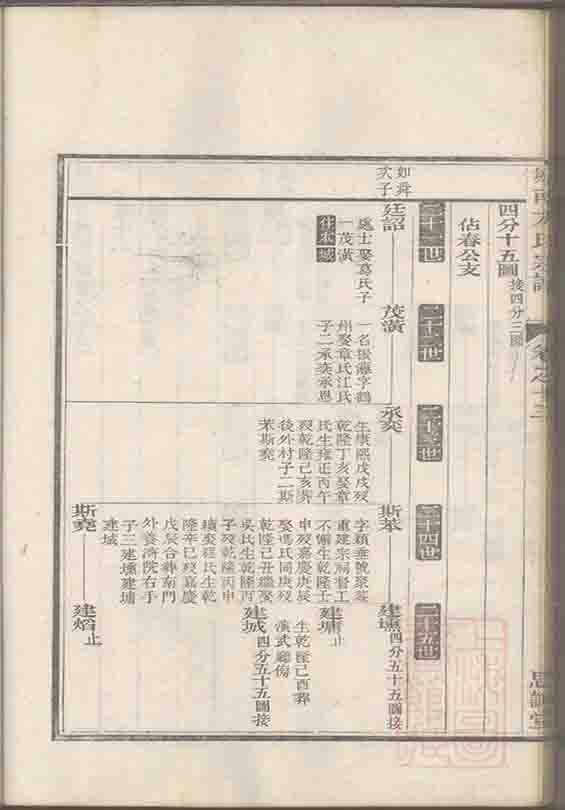 四分十五圖 接四分三圖
佔春公支
二十一世
二十二世
二十三世
二十四世
二十五世
如舜
次子
廷詔
處士娶葛氏子
一茂潢
住本城
茂潢
一名振藩字鶴
州娶章氏江氏
子二承奕承恩
承奕
生康熙戊戌歿
乾隆丁亥娶章
氏生雍正丙午
歿乾隆己亥葬
後外村子二斯
苯斯堯
斯苯
字穎垂號聚菴
重建宗祠督工
不懈生乾隆壬
申歿嘉慶庚辰
娶馮氏同庚歿
乾隆己丑繼娶
吳氏生乾隆丙
子歿乾隆丙申
續娶程氏生乾
隆辛巳歿嘉慶
戊辰合葬南門
外養濟院右手
子三建壎建墉
建城
建壎 四分五十五圖接
建墉 止
生乾隆己酉葬
演武廳傍
建城 四分五十五圖接
斯堯
建熖 止
卷之十三
思誠堂